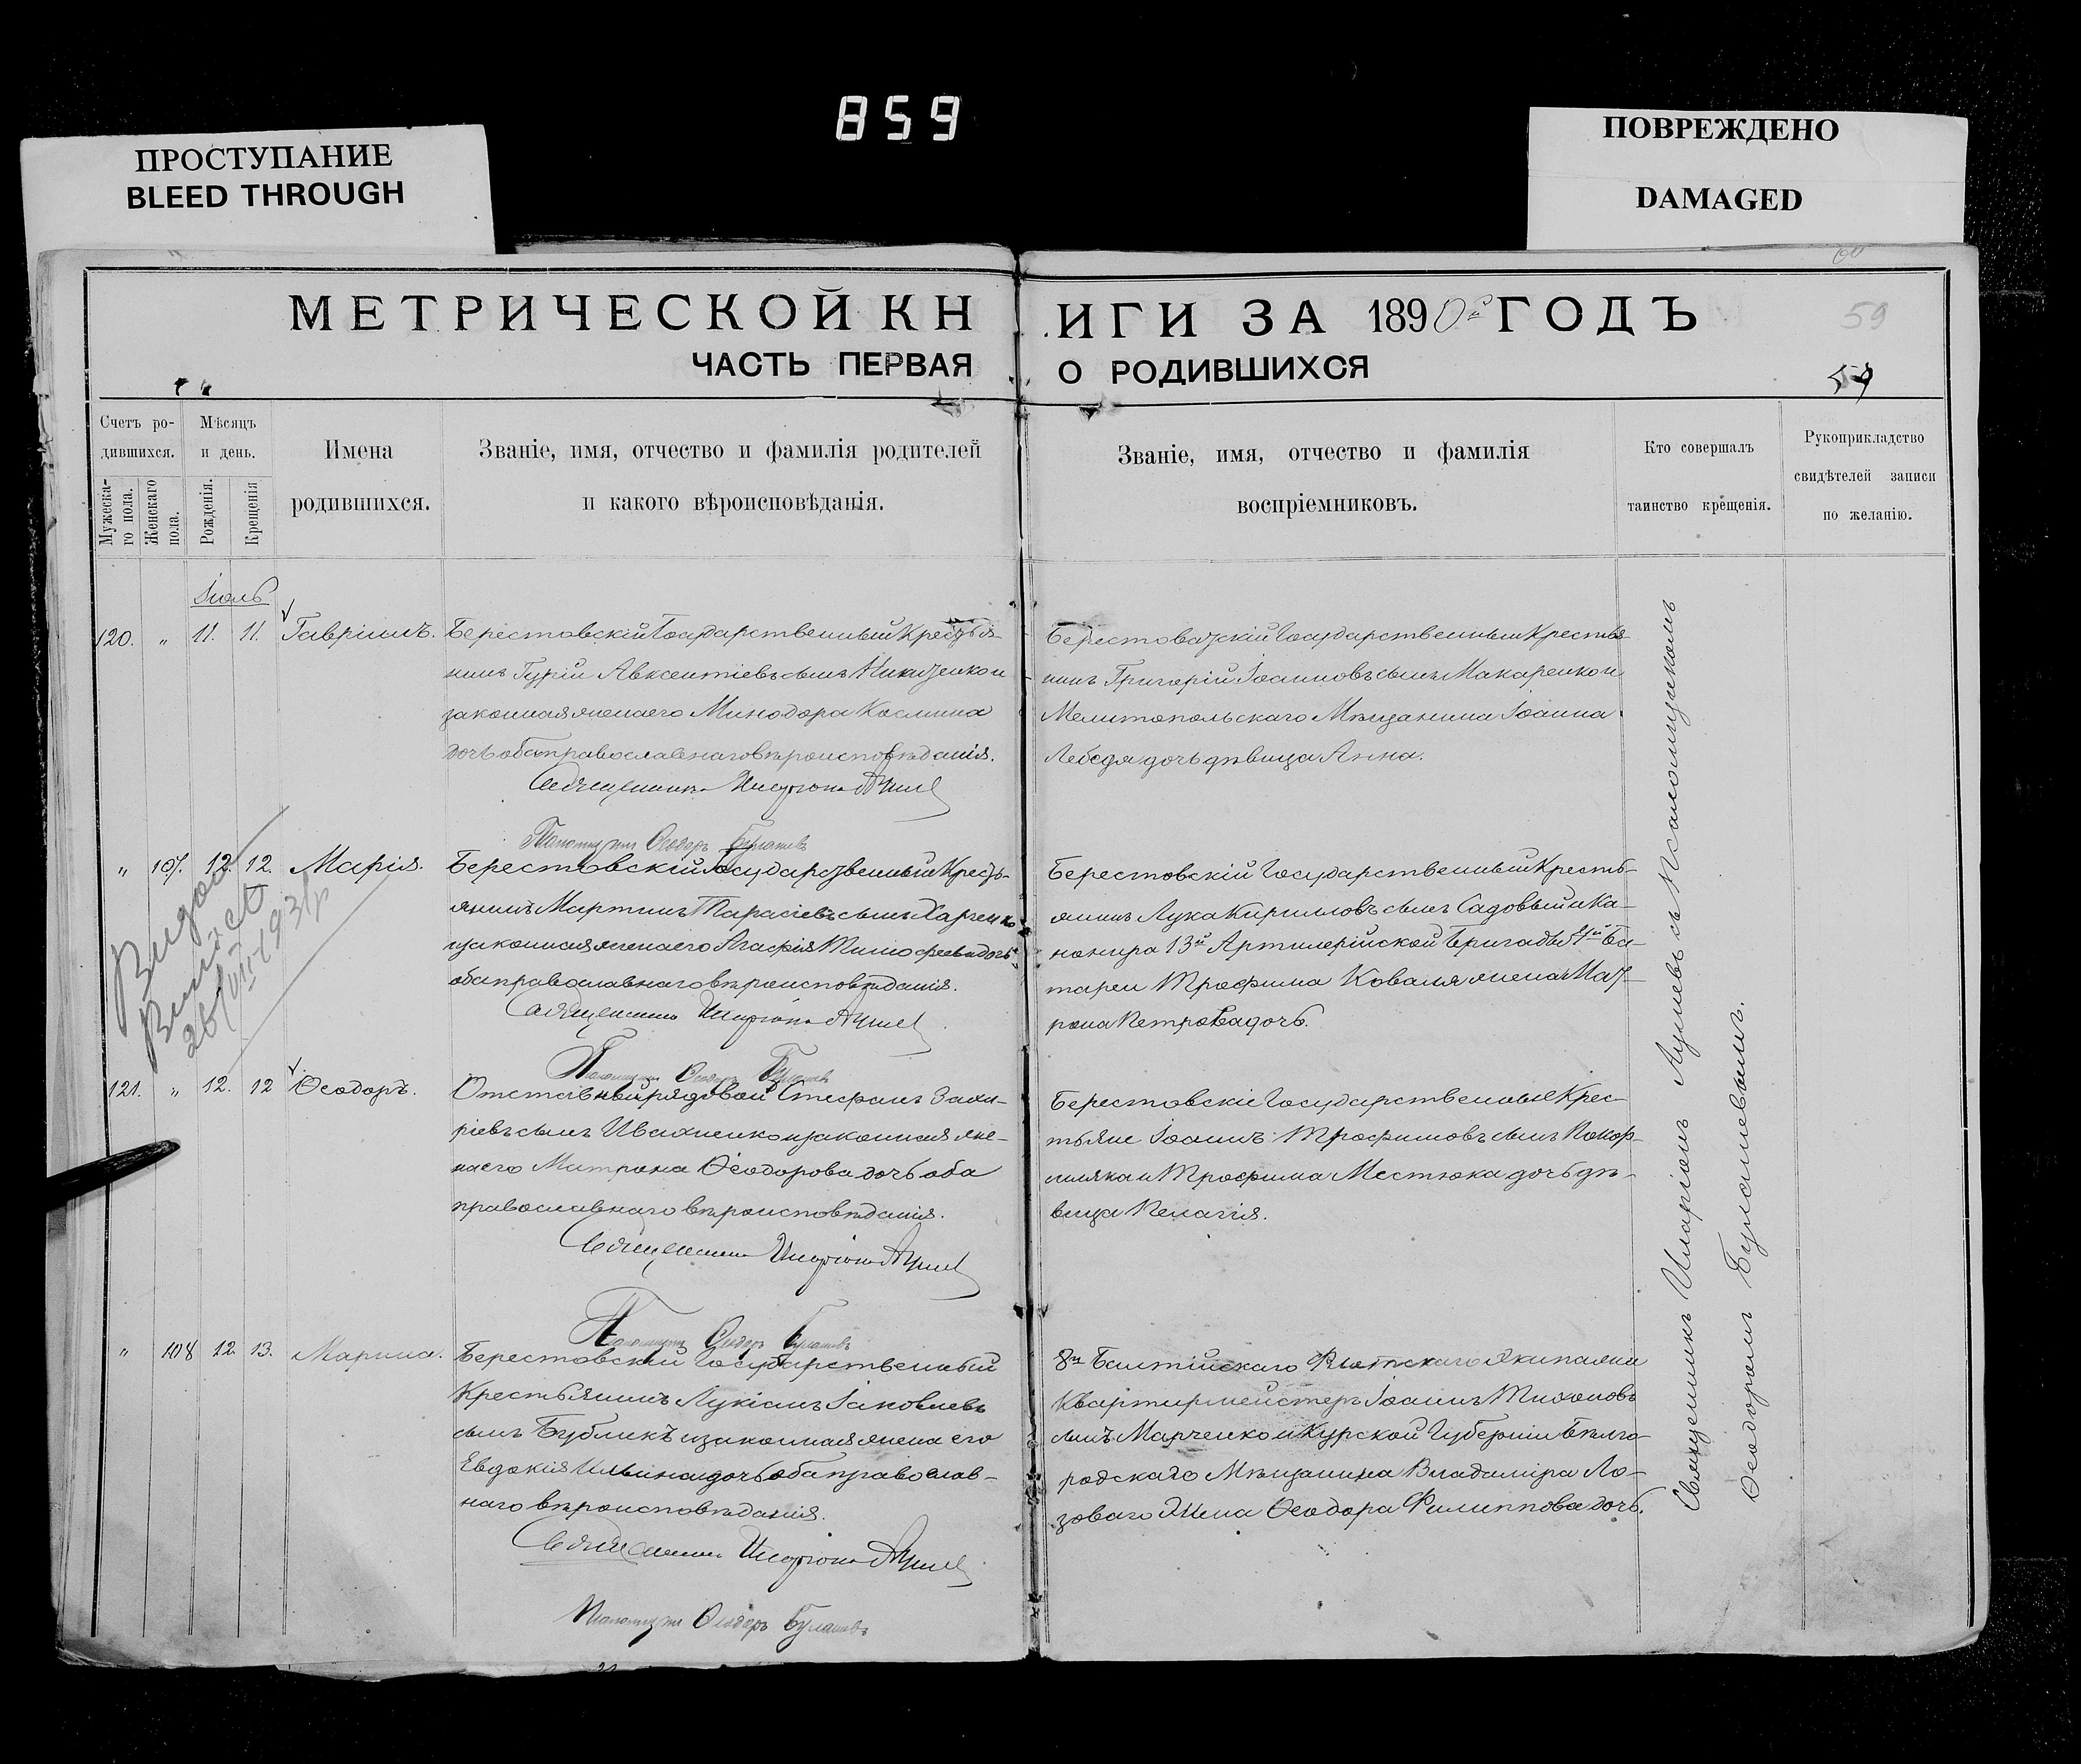 859
ПРОСТУПАНИЕ
BLEED THROUGH
ПОВРЕЖДЕНО
DAMAGED
МЕТРИЧЕСКОЙ КНИГИ ЗА 1890й ГОДЪ
59
ЧАСТЬ ПЕРВАЯ О РОДИВШИХСЯ
59
Счетъ ро-
дившихся.
Мужеска-
го пола.
Женскаго
пола.
Мѣсяцъ
и день.
Рожденія.
Крещенія
Имена
родившихся.
Званіе, имя, отчество и фамилія родителей
и какого вѣроисповѣданія.
Званіе, имя, отчество и фамилія
воспріемниковъ.
Кто совершалъ
таинство крещенія.
Рукоприкладство
свидѣтелей записи
по желанію.
Іюль
120. " 11. 11. Гавріилъ.
Берестовскій Государственный Крестья-
нинъ Гурій Авксентіевъ сынъ Никитенко и
законная жена его Минодора Космина
дочь оба православнаго вѣроисповѣданія.
Священникъ Иларіонъ Лушев
Псаломщикъ Ѳеодоръ Булашевъ
Берестовскій Государственный Крестья-
нинъ Григорій Іоанновъ сынъ Макаренко и
Мелитопольскаго Мѣщанина Іоанна
Лебедя дочь дѣвица Анна.
" 107. 12. 12. Марія.
Берестовскій Государственный Кресть-
янинъ Мартинъ Тарасіевъ сынъ Харченко
и законная жена его Агафія Тимофеева дочь
оба православнаго вѣроисповѣданія.
Священникъ Иларіонъ Лушев
Псаломщикъ Ѳеодоръ Булашевъ
Берестовскій Государственный Кресть-
янинъ Лука Кирилловъ сынъ Садовый и Ка-
нонира 13й Артилерійской Бригады 4й Ба-
тареи Трофима Коваля жена Мат-
рона Петрова дочь.
121. " 12. 12 Ѳеодоръ.
Отставный рядовой Стефанъ Заха-
ріевъ сынъ Ивахненко и законная же-
на его Матрона Ѳеодорова дочь оба
православнаго вѣроисповѣданія.
Священникъ Иларіонъ Лушев
Псаломщикъ Ѳеодоръ Булашевъ
Берестовскіе Государственные Крес-
тьяне Іоаннъ Трофимовъ сынъ
и Трофима Местюка дочь дѣ-
вица Пелагія.
" 108 12. 13. Марина.
Берестовскій Государственный
Крестьянинъ Лукіанъ Іаковлевъ
сынъ Бубликъ и законная жена его
Евдокія Ильина дочь оба православ-
наго вѣроисповѣданія.
Священникъ Иларіонъ Лушев
Псаломщикъ Ѳеодоръ Булашевъ
8го Балтійскаго Флотскаго Экипажа
Квартирмейстеръ Іоаннъ Тихоновъ
сынъ Марченко и Курской Губерніи Бѣлго-
родскаго Мѣщанина Владиміра Ло-
зоваго жена Ѳеодора Филиппова дочь.
Священникъ Иларіонъ Лушевъ съ Псаломщикомъ
Ѳеодоромъ Булашевымъ.